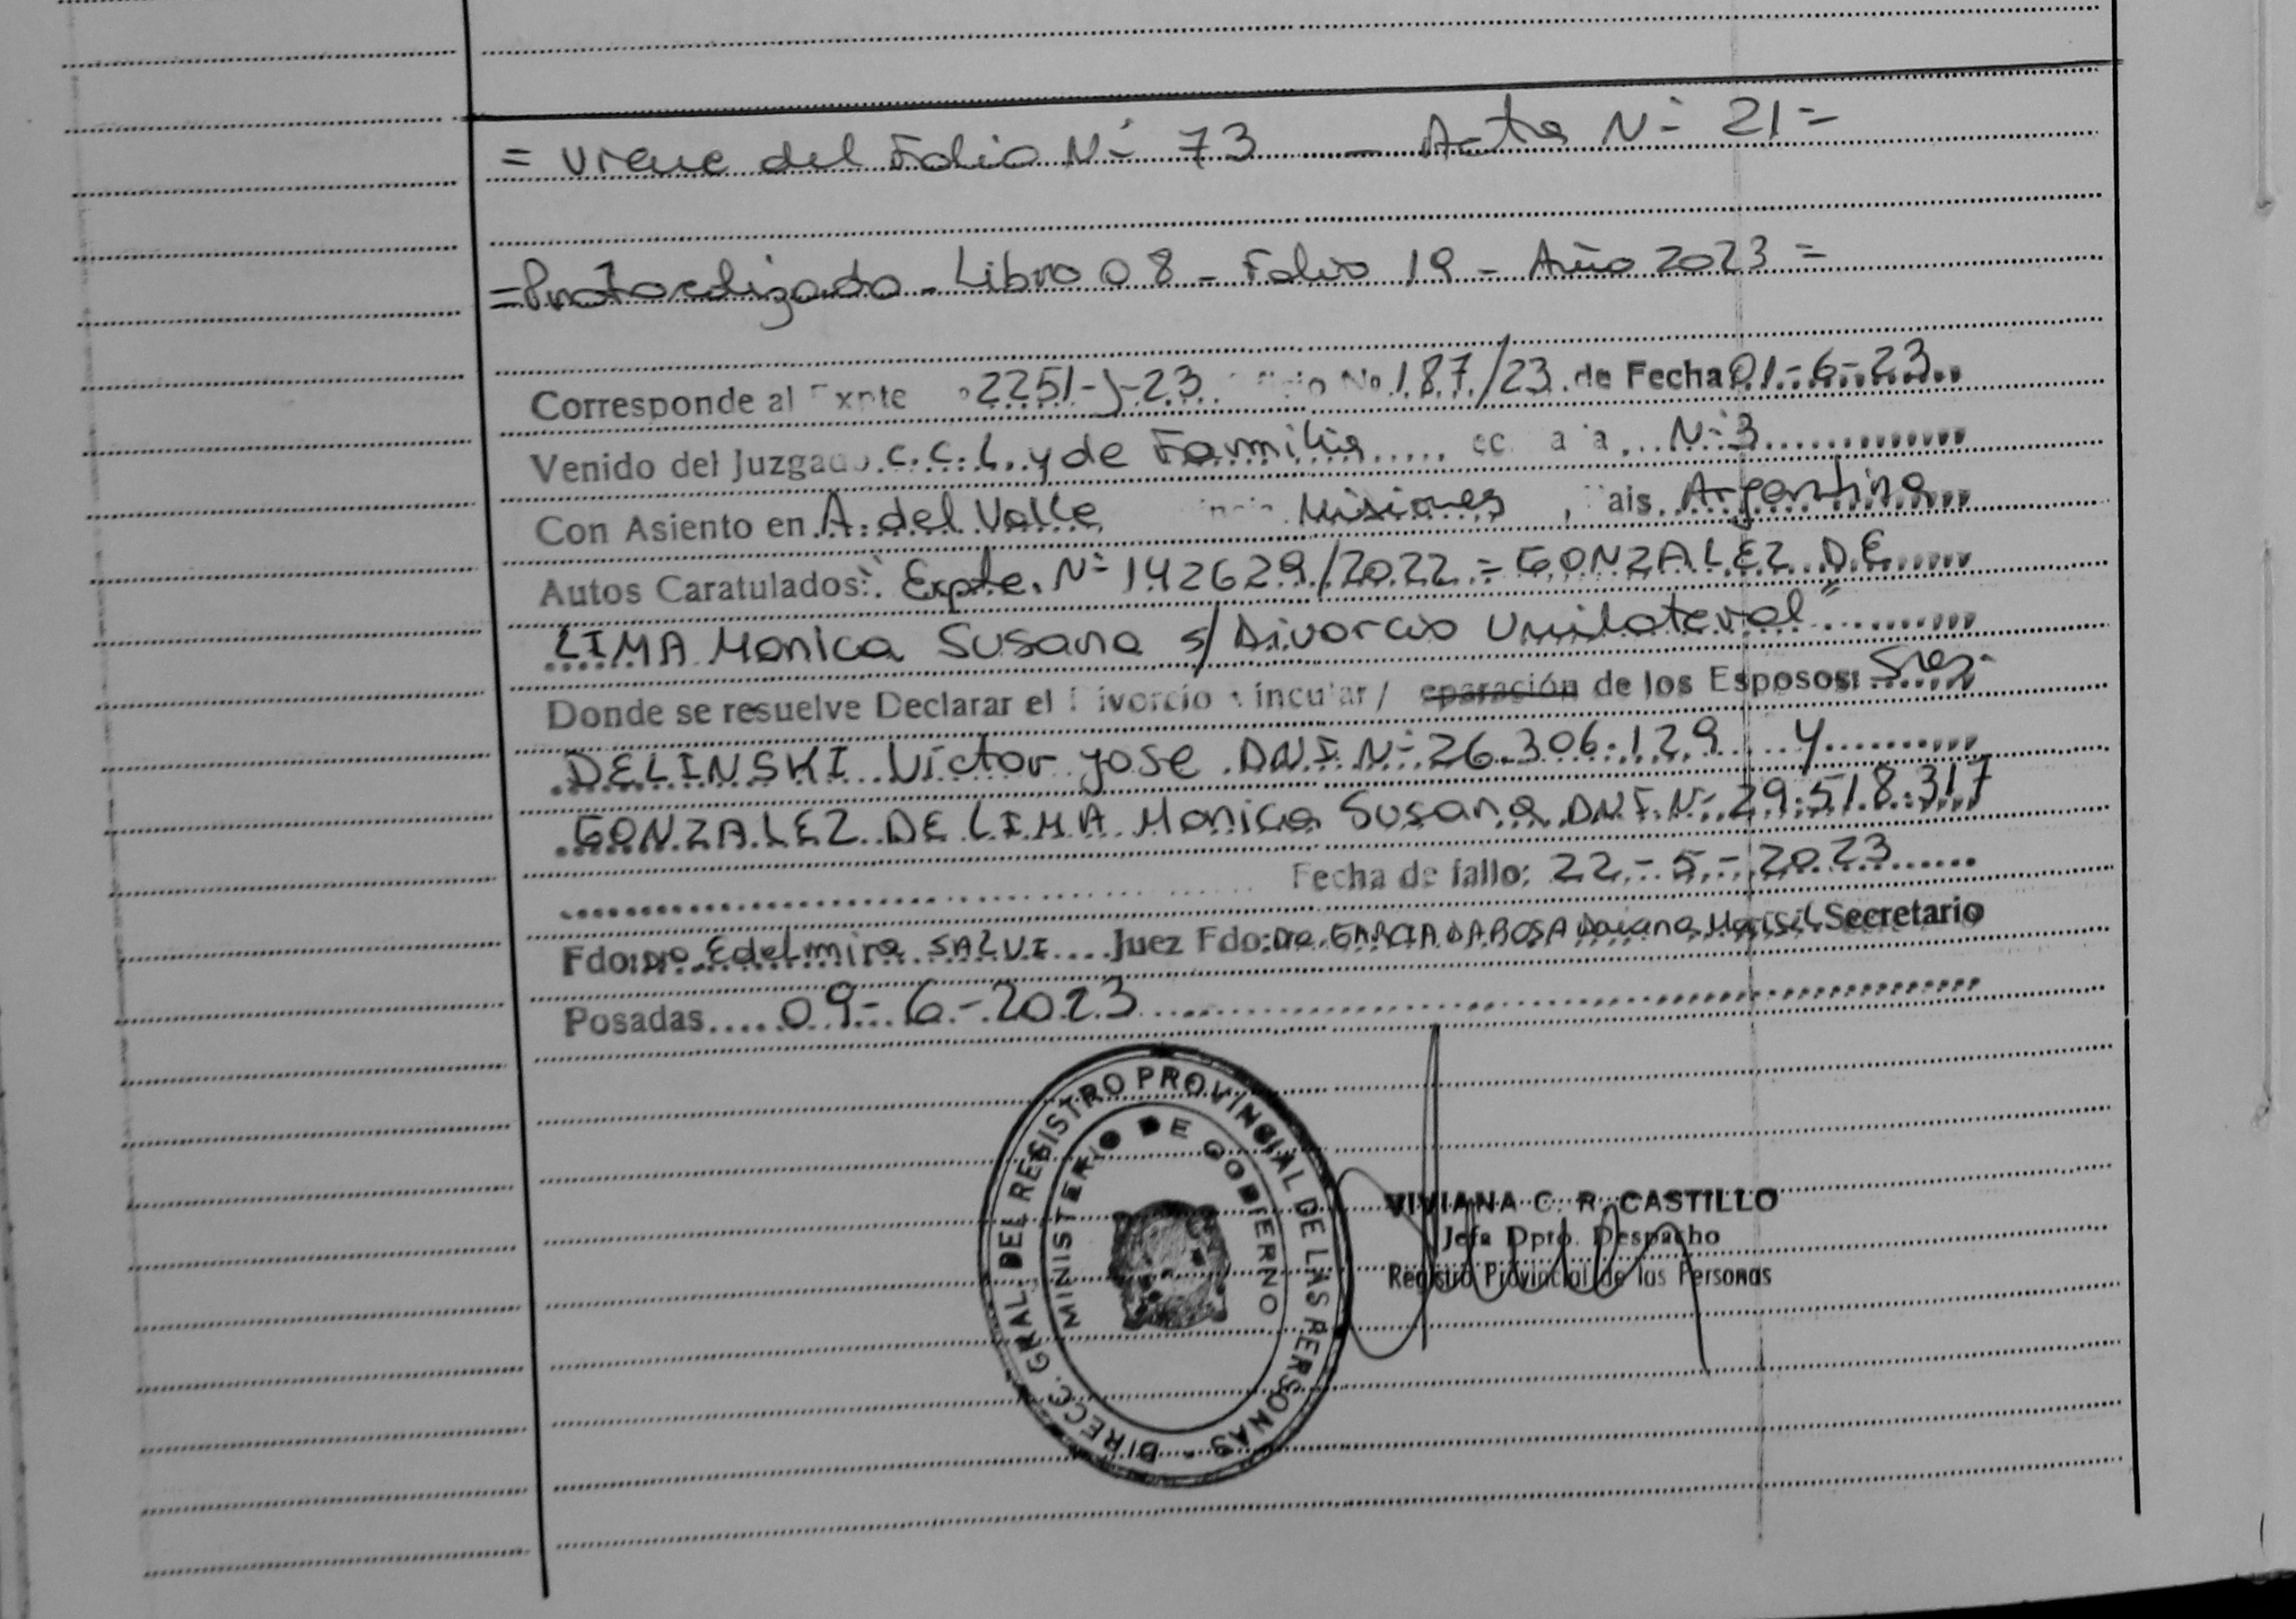 = Viene del Folio Nº 73 - Acta Nº 21 =
= Protocolizado - Libro 08 - Folio 19 - Año 2023 =
Corresponde al Expte 2251-J-23. No. 187/23. de Fecha 01-6-23
Venido del Juzgado C.C.L. y de Familia Nº 3
Con Asiento en A. del Valle Misiones, País Argentina
Autos Caratulados: "Expte. Nº 142629/2022 = GONZALEZ DE
LIMA Monica Susana s/ Divorcio Unilateral"
Donde se resuelve Declarar el Divorcio Vincular / eparación de los Esposos: Sres.
DELINSKI Victor Jose DNI Nº 26.306.129 y
GONZALEZ DE LIMA Monica Susana DNI Nº 29.518.317
Fecha de fallo: 22-5-2023
Fdo: Dra Edelmira SALVI Juez Fdo: Dra. GARCIA DAROSA Daiana Marisel Secretario
Posadas 09-6-2023
DIRECC. GRAL. DEL REGISTRO PROVINCIAL DE LAS PERSONAS -
MINISTERIO DE GOBIERNO
VIVIANA C. R. CASTILLO
Jefa Dpto. Despacho
Registro Provincial de las Personas